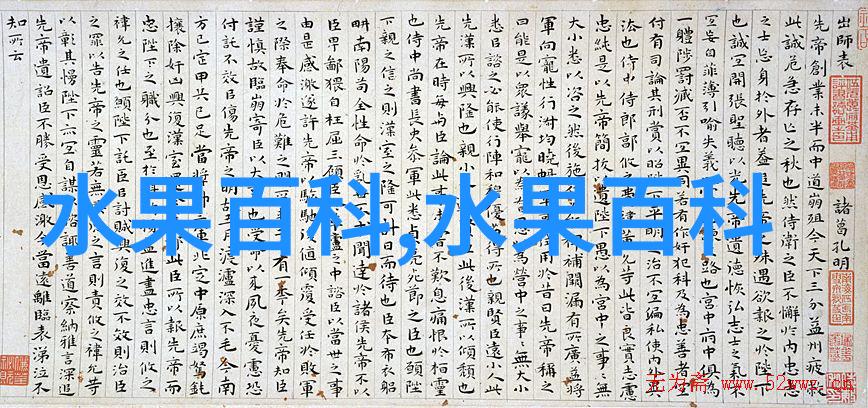 出師表 諸葛孔明
先帝創業未半而中道崩殂今天下三分益州疲敝
此誠危急存亡之秋也然侍衛之臣不懈於內忠志
之士忘身於外者蓋追先帝之殊遇欲報之於陛下
也誠宜開張聖聽以光先帝遺德恢弘志士之氣不
宜妄自菲薄引喻失義路也宮中府中俱為
一體陟罰臧否不宜異同若有作奸犯科及為忠善者宜
付有司論其刑賞以昭陛下平明之治不宜偏私使內外異
法也侍中侍郎郭攸之費禕董允等此皆良實志慮
忠純是以先帝簡拔以遺陛下愚以為宮中之事事無
大小悉以咨之然後施行必裨補闕漏有所廣益將
軍向寵性行淑均曉暢軍用於昔日先帝稱之
曰能是以眾議舉寵以為為營中之事事無大小
悉臣諮之必能使行陣和穆優劣得所也親賢臣遠小人此
先漢所以興隆也親小人臣此後漢所以傾頹也
先帝在時每與臣論此事未嘗不歎息痛恨於桓靈
也侍中尚書長史參軍此悉貞亮死節之臣也願陛
下親之信之則漢室之隆可計日而待也臣本布衣躬
耕南陽苟全性命於亂世不求聞達於諸侯先帝不以
臣卑鄙猥自枉屈三顧臣廬之中諮臣以當世之事
由是感激遂許先帝以驅馳後值傾覆受任於敗軍
之際奉命於危難之間有一年矣先帝知臣
謹慎故臨崩寄臣以大事也受命以來夙夜憂慮恐
付託不效臣傷先帝之明故五月渡瀘深入不毛今南
方已定甲兵已足當獎帥三軍北定中原庶竭駑鈍
攘除奸凶興復漢室此臣所以報先帝而
忠陛下之職分也至於進盡忠言則攸之
禕允之任也願陛下託臣以討賊興復之效不效則治臣
之罪以告先帝之靈若無之言則責攸之禕允等
以彰其慢陛下亦宜自謀以諮諏善道察納雅言深追
先帝遺詔臣不勝受恩感激今當遠離臨表涕泣不
知所云
水果百科,水果百科
无为斋 www.52wwz.cn